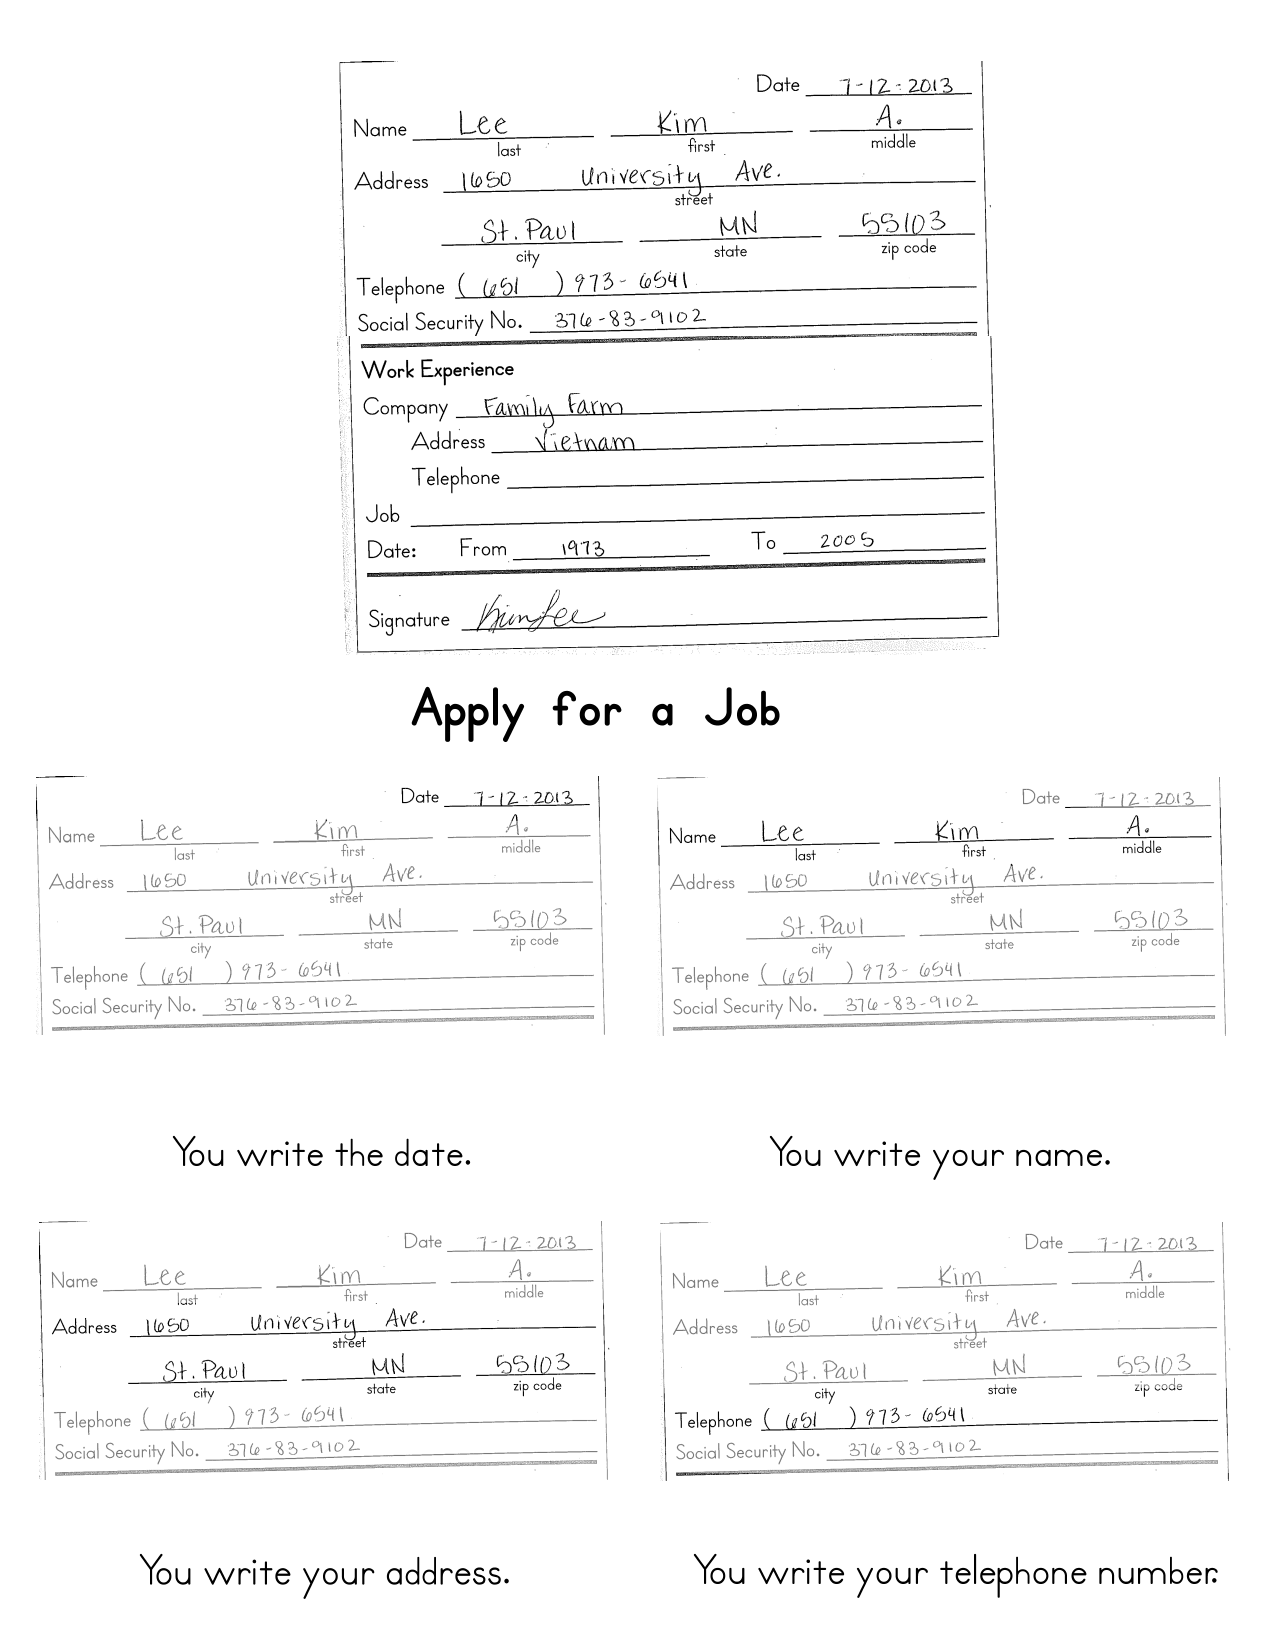 Date 7-12-2013
Name Lee Kim A.
last first middle
Address 1650 University Ave.
street
St. Paul MN 55103
city state zip code
Telephone (651) 973-6541
Social Security No. 376-83-9102
Work Experience
Company Family Farm
Address Vietnam
Telephone
Job
Date: From 1973 To 2005
Signature Kim Lee
Apply for a Job
Date 7-12-2013
Name Lee Kim A.
last first middle
Address 1650 University Ave.
street
St. Paul MN 55103
city state zip code
Telephone (651) 973-6541
Social Security No. 376-83-9102
You write the date.
Date 7-12-2013
Name Lee Kim A.
last first middle
Address 1650 University Ave.
street
St. Paul MN 55103
city state zip code
Telephone (651) 973-6541
Social Security No. 376-83-9102
You write your name.
Date 7-12-2013
Name Lee Kim A.
last first middle
Address 1650 University Ave.
street
St. Paul MN 55103
city state zip code
Telephone (651) 973-6541
Social Security No. 376-83-9102
You write your address.
Date 7-12-2013
Name Lee Kim A.
last first middle
Address 1650 University Ave.
street
St. Paul MN 55103
city state zip code
Telephone (651) 973-6541
Social Security No. 376-83-9102
You write your telephone number.